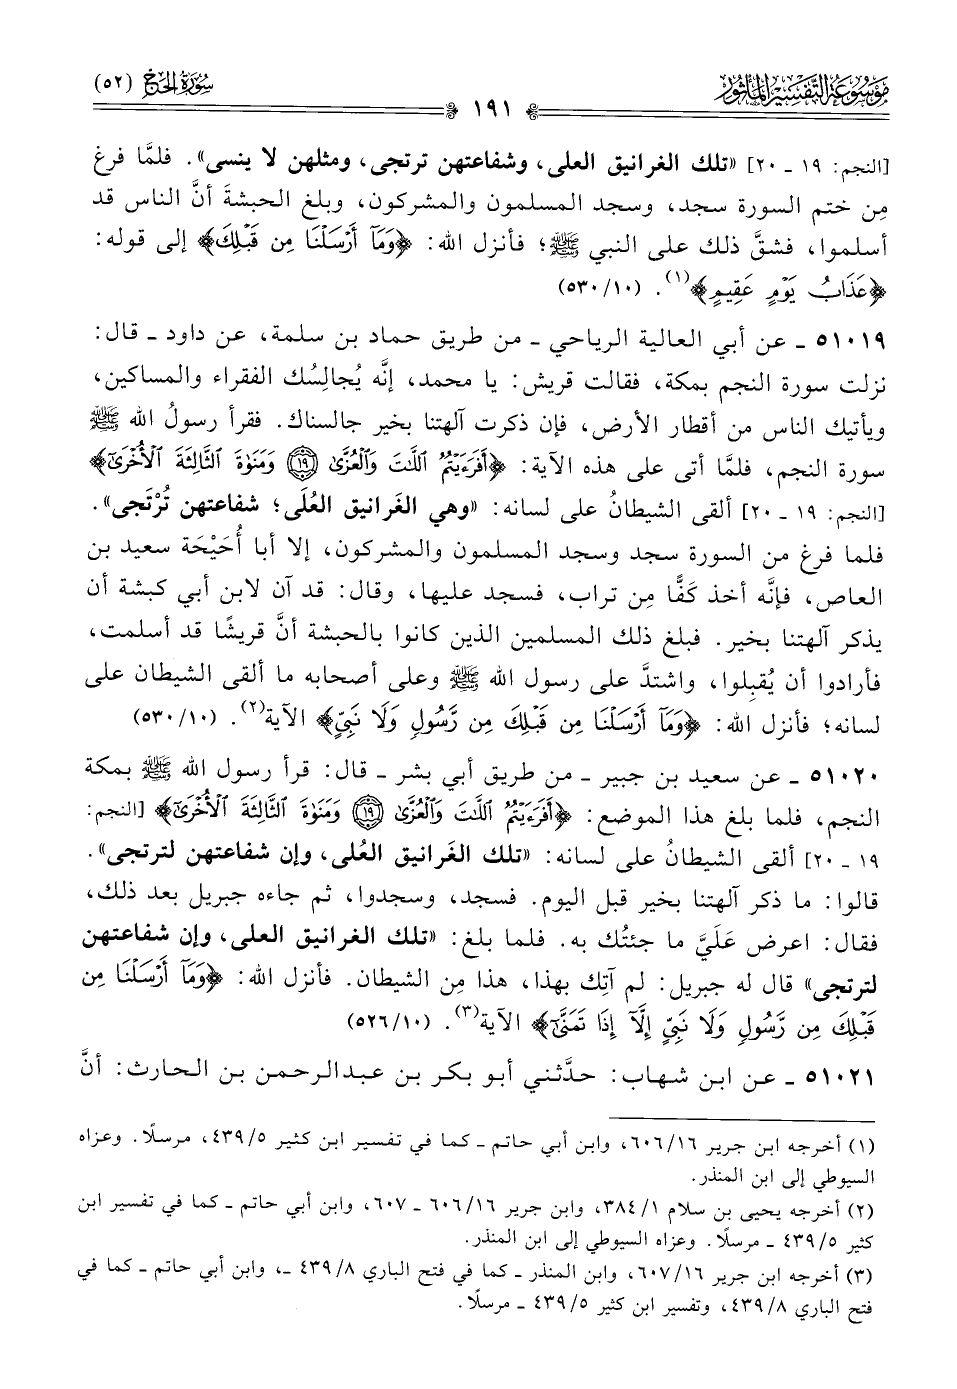 سورة الحج (٥٢)
١٩١
موسوعة التفسير المأثور
[النجم: ١٩ ـ ٢٠] «تلك الغرانيق العلى، وشفاعتهن ترتجى، ومثلهن لا ينسى». فلمَّا فرغ
مِن ختم السورة سجد، وسجد المسلمون والمشركون، وبلغ الحبشةَ أنَّ الناس قد
أسلموا، فشقَّ ذلك على النبي ﷺ؛ فأنزل الله: ﴿وَمَآ أَرْسَلْنَا مِن قَبْلِكَ﴾ إلى قوله:
﴿عَذَابُ يَوْمٍ عَقِيمٍ﴾(١). (١٠/٥٣٠)
٥١٠١٩ ـ عن أبي العالية الرياحي ـ من طريق حماد بن سلمة، عن داود ـ قال:
نزلت سورة النجم بمكة، فقالت قريش: يا محمد، إنَّه يُجالِسُك الفقراء والمساكين،
ويأتيك الناس من أقطار الأرض، فإن ذكرت آلهتنا بخير جالسناك. فقرأ رسولُ الله ﷺ
سورة النجم، فلمَّا أتى على هذه الآية: ﴿أَفَرَءَيْتُمُ ٱللَّٰتَ وَٱلْعُزَّىٰ ١٩ وَمَنَوٰةَ ٱلثَّالِثَةَ ٱلْأُخْرَىٰٓ﴾
[النجم: ١٩ ـ ٢٠] ألقى الشيطانُ على لسانه: «وهي الغَرانيق العُلَى؛ شفاعتهن تُرْتَجى».
فلما فرغ من السورة سجد وسجد المسلمون والمشركون، إلا أبا أُحَيْحَة سعيد بن
العاص، فإنَّه أخذ كَفًّا مِن تراب، فسجد عليها، وقال: قد آن لابن أبي كبشة أن
يذكر آلهتنا بخير. فبلغ ذلك المسلمين الذين كانوا بالحبشة أنَّ قريشًا قد أسلمت،
فأرادوا أن يُقبِلوا، واشتدَّ على رسول الله ﷺ وعلى أصحابه ما ألقى الشيطان على
لسانه؛ فأنزل الله: ﴿وَمَآ أَرْسَلْنَا مِن قَبْلِكَ مِن رَّسُولٍ وَلَا نَبِيٍّ﴾ الآية(٢). (١٠/٥٣٠)
٥١٠٢٠ ـ عن سعيد بن جبير ـ من طريق أبي بشر ـ قال: قرأ رسول الله ﷺ بمكة
النجم، فلما بلغ هذا الموضع: ﴿أَفَرَءَيْتُمُ ٱللَّٰتَ وَٱلْعُزَّىٰ ١٩ وَمَنَوٰةَ ٱلثَّالِثَةَ ٱلْأُخْرَىٰٓ﴾ [النجم:
١٩ ـ ٢٠] ألقى الشيطانُ على لسانه: «تلك الغَرانيق العُلى، وإن شفاعتهن لترتجى».
قالوا: ما ذكر آلهتنا بخير قبل اليوم. فسجد، وسجدوا، ثم جاءه جبريل بعد ذلك،
فقال: اعرض عَلَيَّ ما جئتُك به. فلما بلغ: «تلك الغرانيق العلى، وإن شفاعتهن
لترتجى» قال له جبريل: لم آتِك بهذا، هذا مِن الشيطان. فأنزل الله: ﴿وَمَآ أَرْسَلْنَا مِن
قَبْلِكَ مِن رَّسُولٍ وَلَا نَبِيٍّ إِلَّآ إِذَا تَمَنَّىٰٓ﴾ الآية(٣). (١٠/٥٢٦)
٥١٠٢١ ـ عن ابن شهاب: حدَّثني أبو بكر بن عبدالرحمن بن الحارث: أنَّ
(١) أخرجه ابن جرير ١٦/٦٠٦، وابن أبي حاتم ـ كما في تفسير ابن كثير ٥/٤٣٩، مرسلًا. وعزاه
السيوطي إلى ابن المنذر.
(٢) أخرجه يحيى بن سلام ١/٣٨٤، وابن جرير ١٦/٦٠٦ ـ ٦٠٧، وابن أبي حاتم ـ كما في تفسير ابن
كثير ٥/٤٣٩ ـ مرسلًا. وعزاه السيوطي إلى ابن المنذر.
(٣) أخرجه ابن جرير ١٦/٦٠٧، وابن المنذر ـ كما في فتح الباري ٨/٤٣٩ ـ، وابن أبي حاتم ـ كما في
فتح الباري ٨/٤٣٩، وتفسير ابن كثير ٥/٤٣٩ ـ مرسلًا.